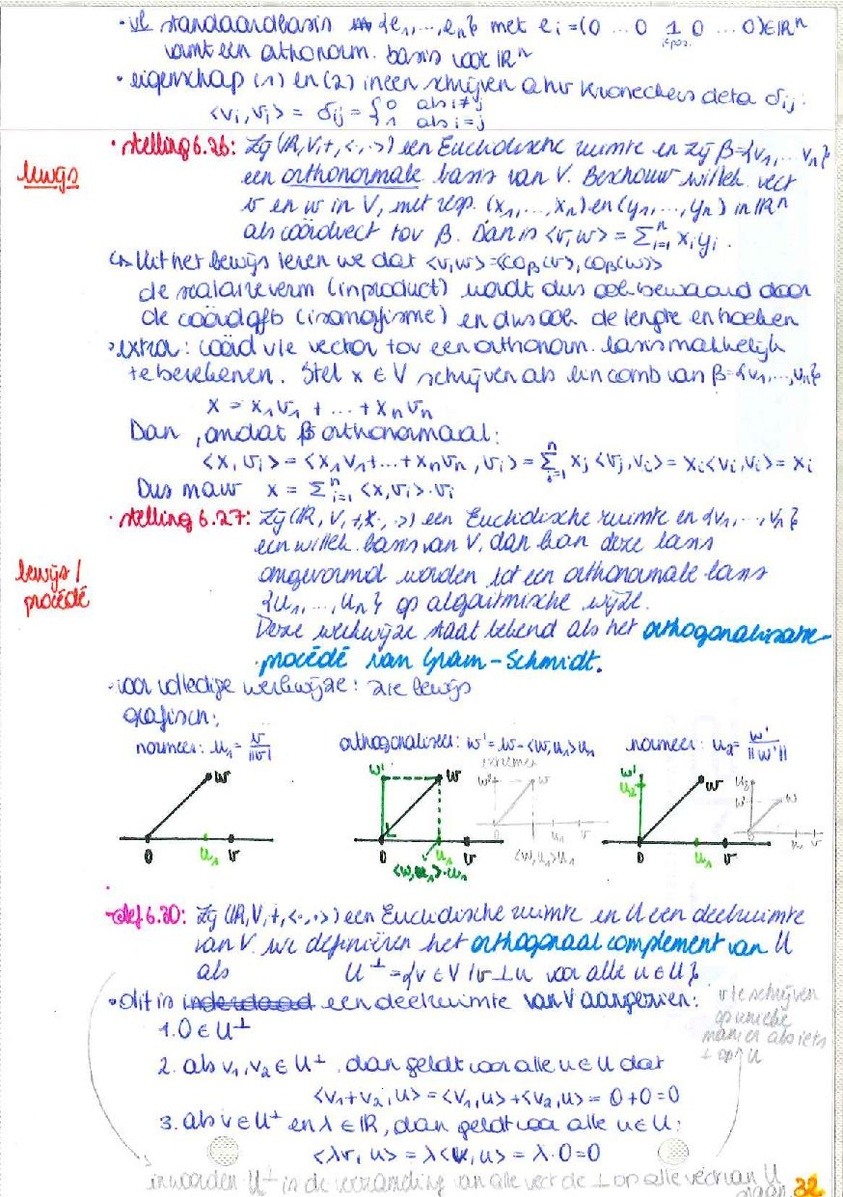 · vb standaardbasis {e₁,...,eₙ} met eᵢ = (0 ... 0 1 0 ... 0) ∈ ℝⁿ
iᵉ pos.
vormt een orthonorm. basis voor ℝⁿ
· eigenschap (1) en (2) ineen schrijven ahv Kroneckers delta δᵢⱼ:
<vᵢ, vⱼ> = δᵢⱼ = { 0 als i≠j
1 als i=j
· stelling 6.26: Zij (ℝ,V,+,<·,·>) een Euclidische ruimte en zij β={v₁,...vₙ}
bewijs
een orthonormale basis van V. Beschouw willek. vect
v en w in V, met resp. (x₁,...,xₙ) en (y₁,...,yₙ) in ℝⁿ
als coördvect tov β. Dan is <v,w> = Σⁿᵢ₌₁ xᵢyᵢ.
↳ Uit het bewijs leren we dat <v,w> = <coβ(v), coβ(w)>
de scalaire verm (inproduct) wordt dus ook bewaard door
de coördafb (isomorfisme) en dus ook de lengte en hoeken
· extra: coörd v/e vector tov een orthonorm. basis makkelijk
te berekenen. Stel x ∈ V schrijven als lin comb van β={v₁,...,vₙ}
x = x₁v₁ + ... + xₙvₙ
Dan, omdat β orthonormaal:
<x, vᵢ> = <x₁v₁+...+xₙvₙ, vᵢ> = Σⁿᵢ₌₁ xⱼ <vⱼ,vᵢ> = xᵢ<vᵢ,vᵢ> = xᵢ
Dus maw x = Σⁿᵢ₌₁ <x,vᵢ>·vᵢ
· stelling 6.27: Zij (ℝ, V, +, <·, ·>) een Euclidische ruimte en {v₁,...,vₙ}
een willek. basis van V, dan kan deze basis
bewijs/
procédé
omgevormd worden tot een orthonormale basis
{u₁,...,uₙ} op algoritmische wijze.
Deze werkwijze staat bekend als het orthogonalisatie-
procédé van Gram-Schmidt.
· voor volledige werkwijze: zie bewijs
grafisch:
normeer: u₁ = v/||v|| orthogonaliseer: w' = w - <w,u₁>u₁ normeer: u₂ = w'/||w'||
w w' w w' w w
w' u₂ w u₂ w' w
0 u₁ v 0 u₁ v 0 u₁ v 0 u₁ v u₁ v
<w,u₁>·u₁ <w,u₁>u₁
· def 6.30: Zij (ℝ,V,+,<·,·>) een Euclidische ruimte en U een deelruimte
van V. we definiëren het orthogonaal complement van U
als U^⊥ = {v ∈ V | v ⊥ u voor alle u ∈ U}
· Dit is inderdaad een deelruimte van V aangezien:
v te schrijven
op unieke
manier als iets
⊥ op U
1. 0 ∈ U^⊥
2. als v₁,v₂ ∈ U^⊥, dan geldt voor alle u ∈ U dat
<v₁+v₂, u> = <v₁,u> + <v₂,u> = 0+0 = 0
3. als v ∈ U^⊥ en λ ∈ ℝ, dan geldt voor alle u ∈ U:
<λv, u> = λ<v,u> = λ·0 = 0
in woorden U^⊥ is de verzameling van alle vect de ⊥ op alle vect van U
staan 32